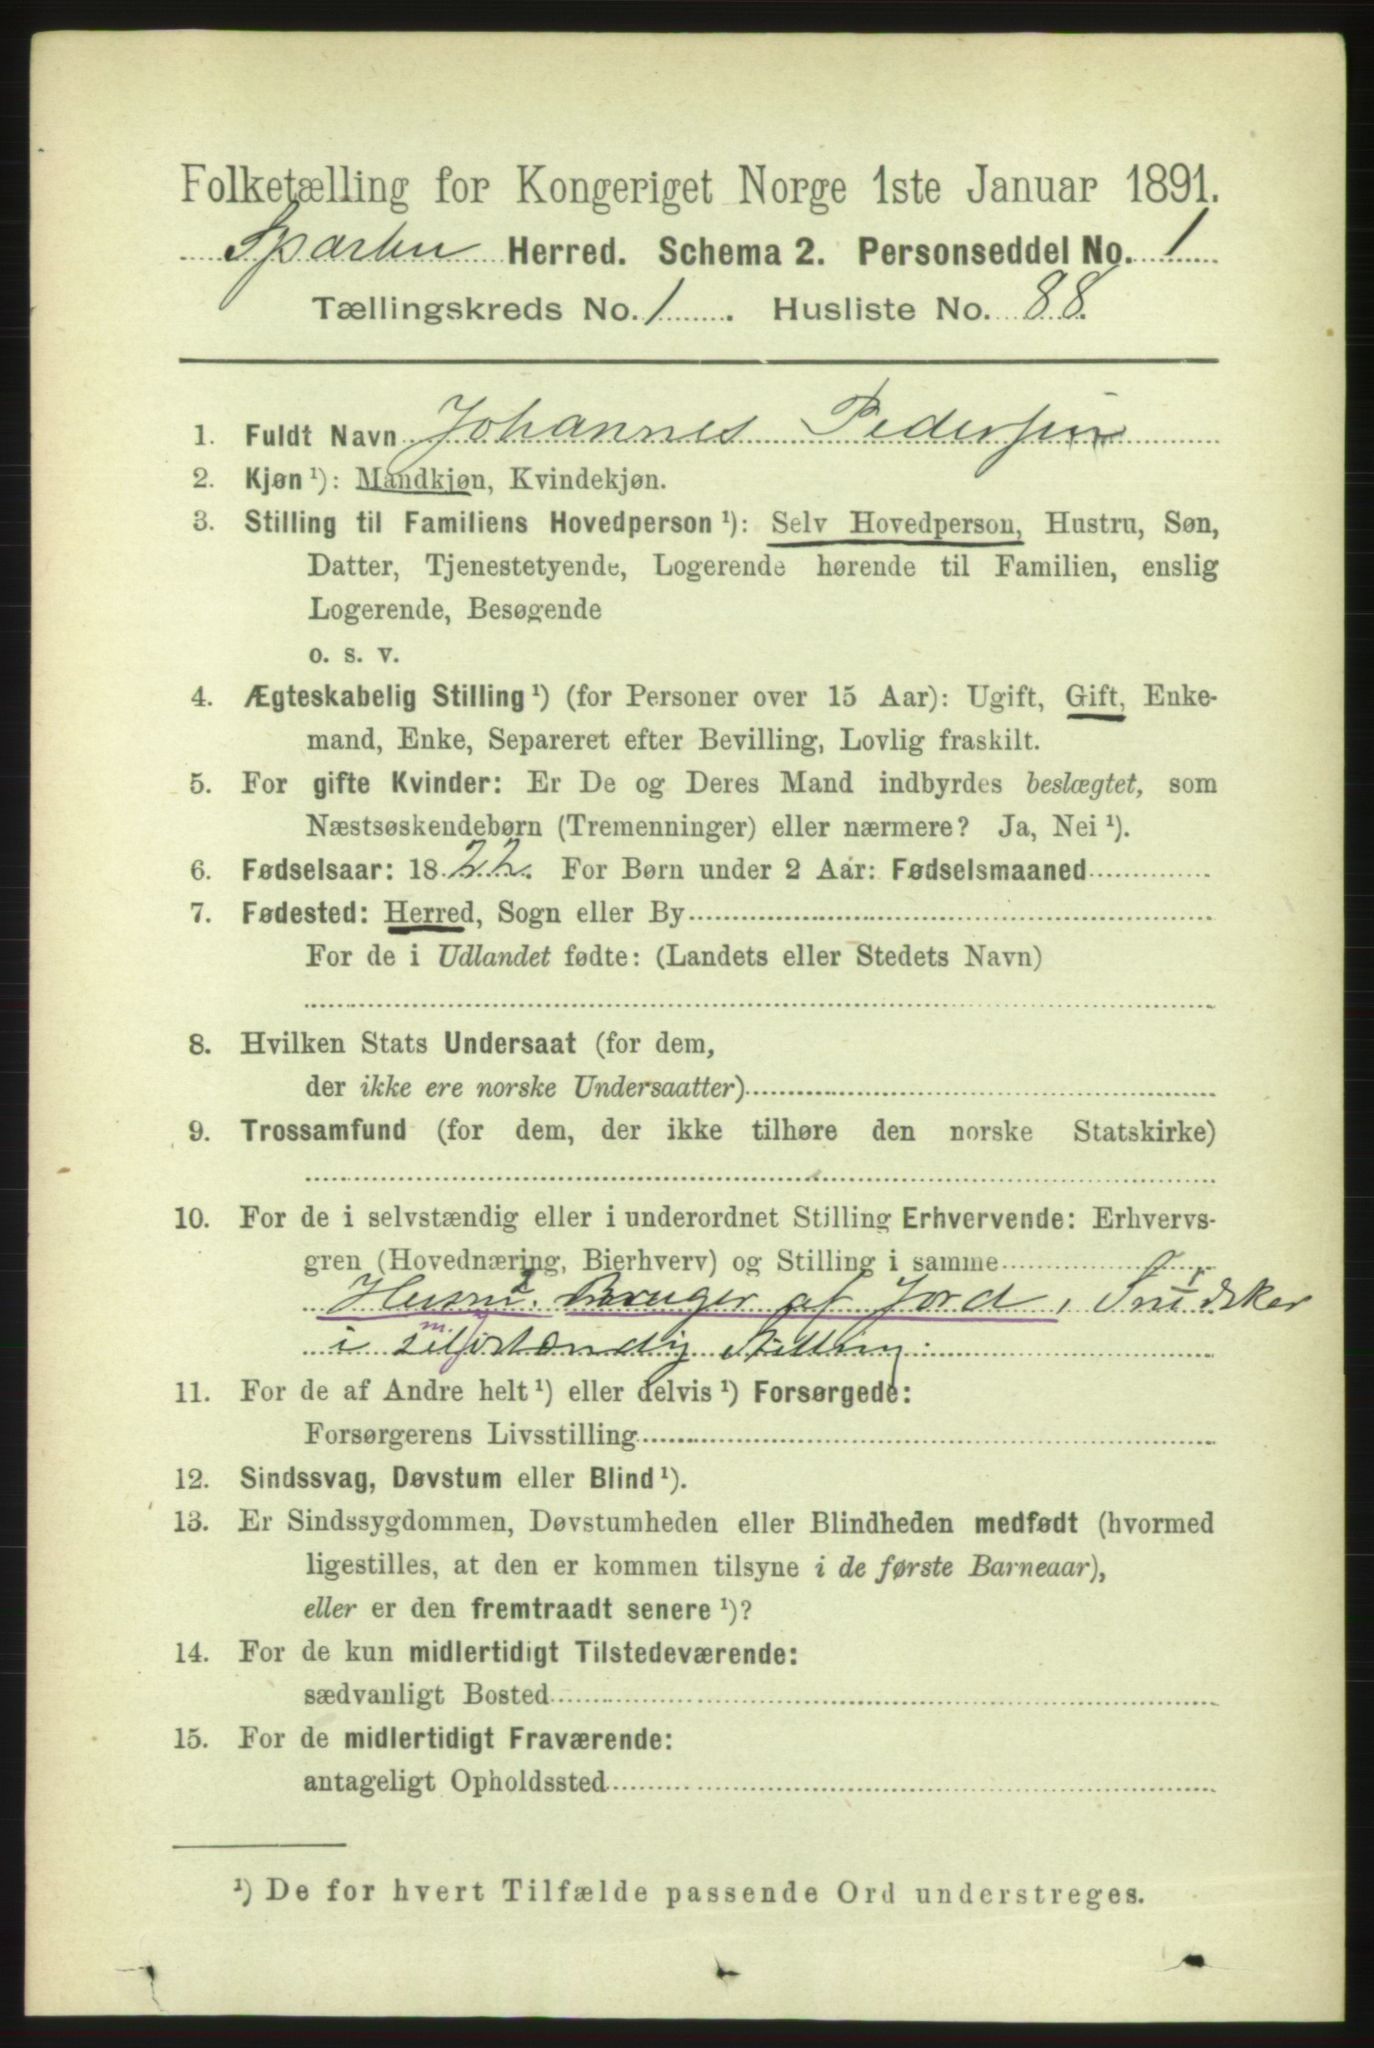 Folketælling for Kongeriget Norge 1ste Januar 1891.
Sparbu Herred. Schema 2. Personseddel No. 1
Tællingskreds No. 1 . Husliste No. 88.
1. Fuldt Navn Johannes Pedersen
2. Kjøn ¹): Mandkjøn, Kvindekjøn.
3. Stilling til Familiens Hovedperson ¹): Selv Hovedperson, Hustru, Søn,
Datter, Tjenestetyende, Logerende hørende til Familien, enslig
Logerende, Besøgende
o. s. v.
4. Ægteskabelig Stilling ¹) (for Personer over 15 Aar): Ugift, Gift, Enke-
mand, Enke, Separeret efter Bevilling, Lovlig fraskilt.
5. For gifte Kvinder: Er De og Deres Mand indbyrdes beslægtet, som
Næstsøskendebørn (Tremenninger) eller nærmere? Ja, Nei ¹).
6. Fødselsaar: 1822. For Børn under 2 Aar: Fødselsmaaned
7. Fødested: Herred, Sogn eller By
For de i Udlandet fødte: (Landets eller Stedets Navn)
8. Hvilken Stats Undersaat (for dem,
der ikke ere norske Undersaatter)
9. Trossamfund (for dem, der ikke tilhøre den norske Statskirke)
10. For de i selvstændig eller i underordnet Stilling Erhvervende: Erhvervs-
gren (Hovednæring, Bierhverv) og Stilling i samme
Husm. Bruger af Jord, Snedker
i selvstændig Stilling
11. For de af Andre helt ¹) eller delvis ¹) Forsørgede:
Forsørgerens Livsstilling
12. Sindssvag, Døvstum eller Blind ¹).
13. Er Sindssygdommen, Døvstumheden eller Blindheden medfødt (hvormed
ligestilles, at den er kommen tilsyne i de første Barneaar),
eller er den fremtraadt senere ¹)?
14. For de kun midlertidigt Tilstedeværende:
sædvanligt Bosted
15. For de midlertidigt Fraværende:
antageligt Opholdssted
¹) De for hvert Tilfælde passende Ord understreges.